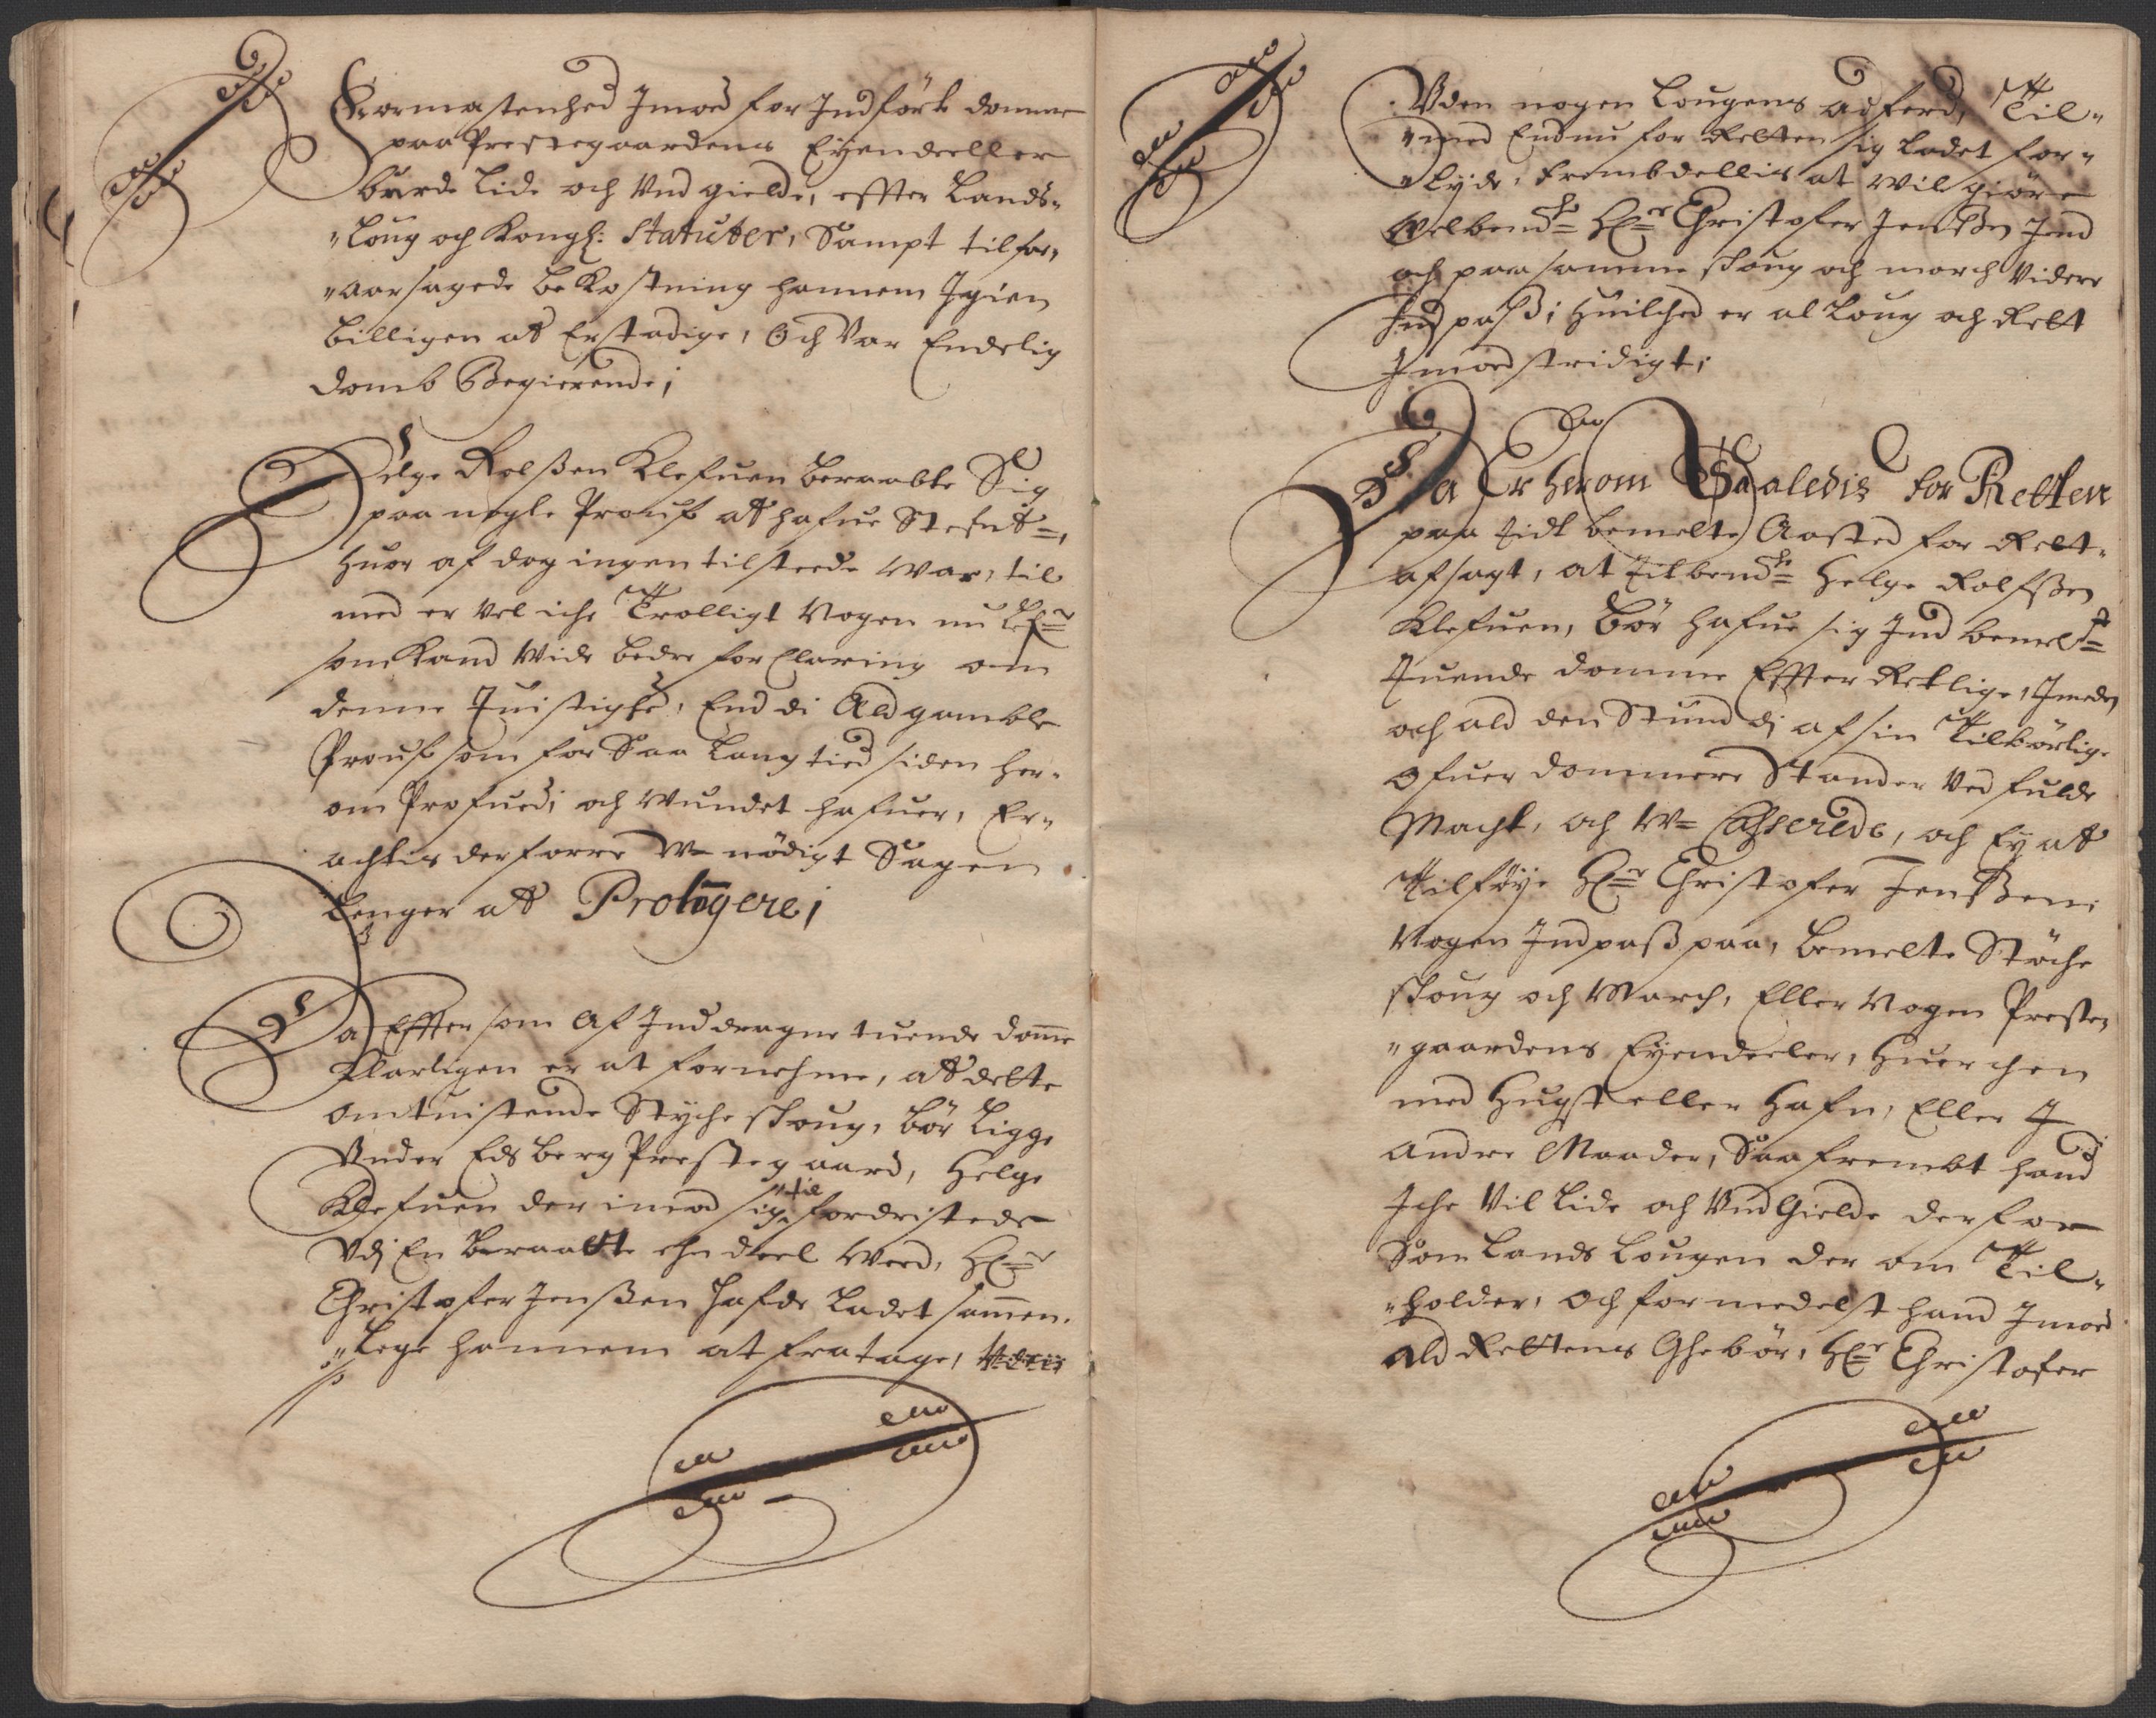 Formastenhed Imod for Indförte domme
paa Prestegaardens Eyendeeller
burde lide och Undgielde, effter Lands-
"Loug och Kongl: Statuter, Sampt til for-
"aarsagede bekostning hannem Igien
billigen at Erstadige, Och var Endelig
domb Begierende;
Helge Rolfsen Klefuen beraabte Sig
paa nogle Prouf at hafue Stefnt,
huor af dog ingen tilstede war, til
med er vel iche Troligt Nogen nu Lefr
som kand vide bedre forClaring om
denne Tuistighed, End di Ald gamble
Prouf som for Saa lang tied siden her-
om Profued, och Wundet hafuer, Er-
achtis derforre W- nödigt Sagen
lenger at Prolongere;
Da Effter som Af Inddragne tuende domme
klarligen er at fornehme, at dette
omtuistende Styche skoug, bör Ligge
Under Edsberg Prestegaard, Helge
Klefuen der imod sig til fordristede
Vdj En beraabte ehn deel Weed, Hr
Christofer Jenssen hafde ladet sammen-
"legge hannem at fratage,
Uden nogen Lougens adferd, Til-
"med Endnu for Retten sig ladet for-
"lyde, frembdellis at wil giöre
Welbemte Hr Christofer Jenssen Ind
och paa samme skoug och march videre
Indpass; huilched er al Loug och Rett
Imodstridigt;
Da Er herom Saaledis for Retten
paa tidt bemelte Aasted for Rett-
afsagt, at titbemte Helge Rolfssen
Klefuen, bör hafue sig Ind bemelte
Tuende domme Effterrettlige, Imeden
och ald den Stund dj af sin Tilbörlige
ofuer dommere Stander ved fulde
Macht, och W- Casserede, och Ey at
Tilföye Hr Christofer Jenssen
Nogen Indpass paa, bemelte Stöche
skoug och March, Eller Nogen Preste-
"gaardens Eyendeeler, huerchen
med hugst eller hafn, Eller I
andre Maader, Saafrembt hand
Iche vil lide och Undgielde derfor
Som Lands Lougen der om Til-
"holder, och formedelst hand Imod
ald Rettens Ghebör, Hr Christofer